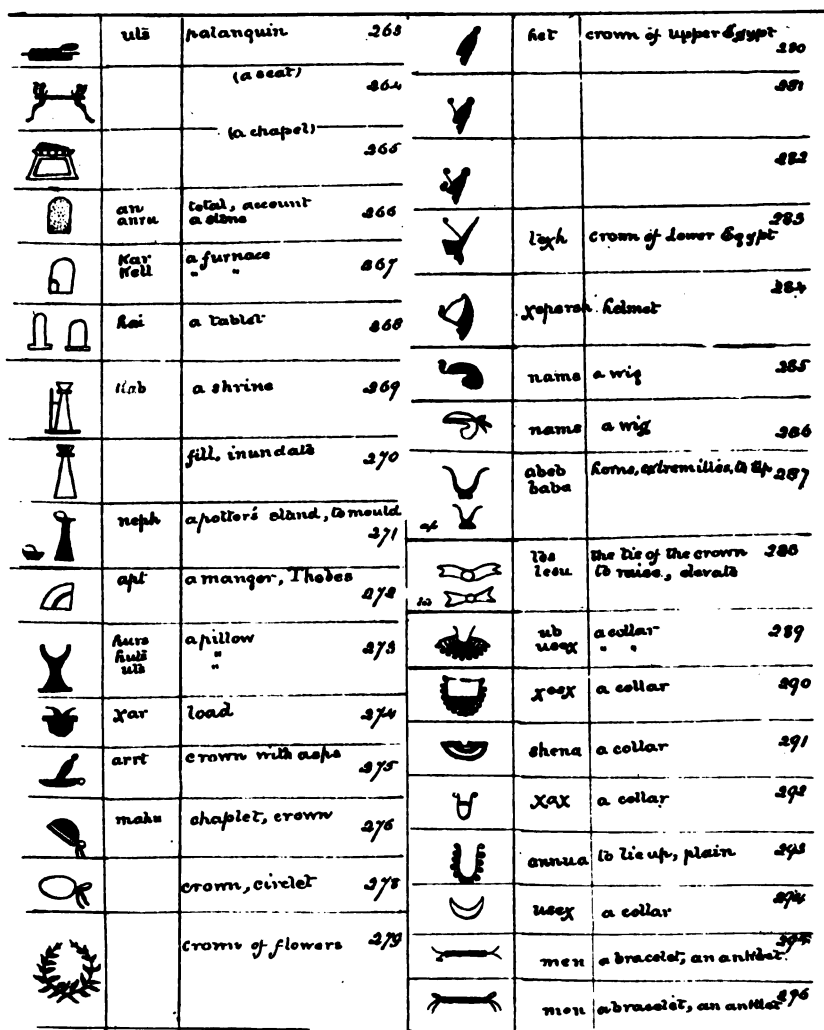 utā palanquin 263
(a seat) 264
(a chapel) 265
an total, account 266
anru a stone
Kar a furnace 267
Kell " "
hai a tablet 268
a shrine 269
fill, inundate 270
neph a potter's stand, to mould 271
apt a manger, Thebes 272
hurs a pillow 273
hutā "
utā "
χar load 274
arrt crown with asps 275
mahu chaplet, crown 276
crown, circlet 278
crown of flowers 279
het crown of upper Egypt 280
281
282
teχh crown of Lower Egypt 283
χepersh helmet 284
nams a wig 285
nams a wig 286
abeb horns, extremities, to tip 287
baba
the tie of the crown 288
to raise, elevate
ub a collar 289
useχ " "
a collar 290
shena a collar 291
χaχ a collar 292
annua to tie up, plain 293
useχ a collar 294
men a bracelet, an anklet 295
men a bracelet, an anklet 296